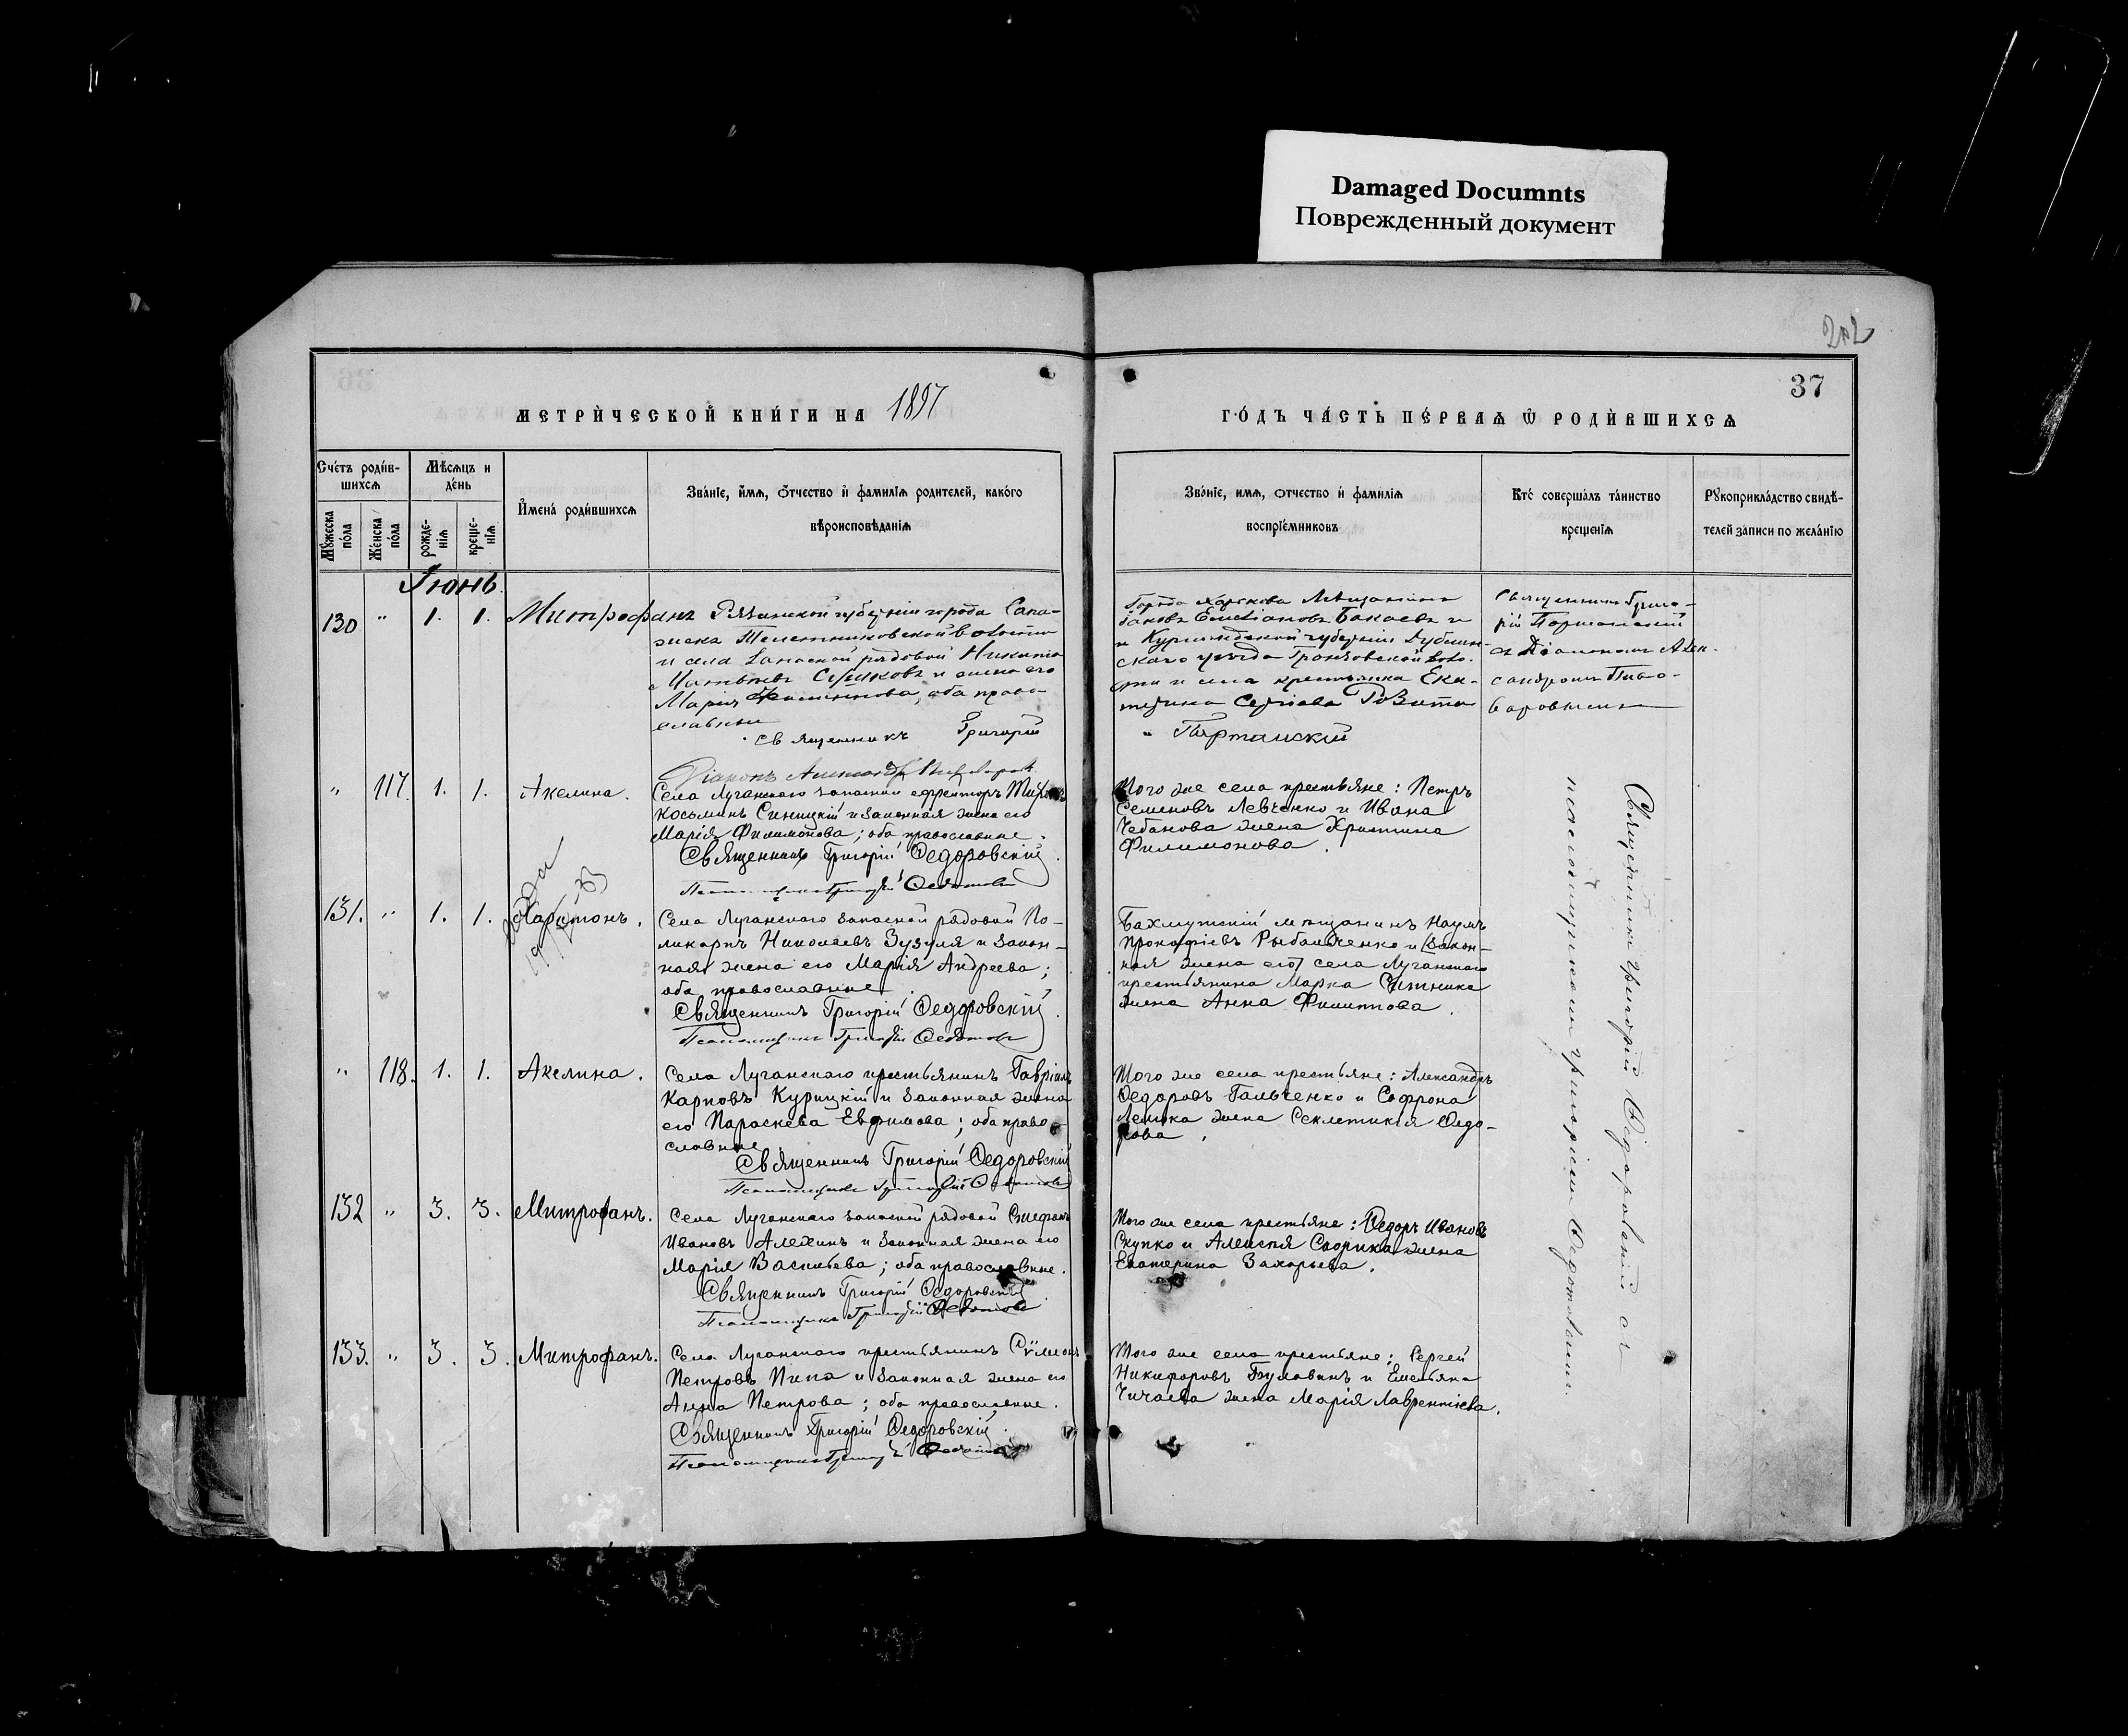 Damaged Documnts
Поврежденный документ
37
МЕТРИ́ЧЕСКОЙ КНИ́ГИ НА 1897
ГО́ДЪ ЧА́СТЬ ПЕ́РВАЯ Ѡ РОДИ́ВШИХСЯ
Сче́тъ роди́в-
шихся
Мѣсяцъ и
де́нь
Мꙋжеска по́ла
Же́нска по́ла
рожде-
нїя
креще-
нїя
Имена́ роди́вшихся
Зва́нїе, и́мя, о́тчество и́ фами́лїя родителей, како́го
вѣроисповѣданїя
Зва́нїе, имя, отчество и́ фами́лїя
воспрїе́мниковъ
Кто́ соверша́лъ та́инство
крещенїя
Рꙋкоприкла́дство свидѣ-
телей за́писи по жела́нїю
Іюнь
130 " 1. 1. Митрофанъ
Рязанской губерніи города Сапо-
жка
и села рядовой Никита
и жена его
Марія оба право-
славные
Священникъ Григорій
Города Харькова Мѣщанинъ
Емельяновъ Бакаевъ и
и губерніи
ского уѣзда
и села крестьянка Ека-
терина Сергіева
Священникъ Григо-
рій
съ Діакономъ Алек-
сандромъ Пиво-
варовымъ
Діаконъ
" 117. 1. 1. Акелина.
Села Луганскаго запасной ефрейторъ Тихонъ
Косьминъ Синицкій и законная жена его
Марія Филимонова; оба православные.
Священникъ Григорій Ѳедоровскій.
Псаломщикъ Григорій
Того же села крестьяне: Петръ
Семеновъ Левченко и Ивана
Чебанова жена Христина
Филимонова.
131. " 1. 1. Харитонъ.
Села Луганскаго запасной рядовой По-
ликарпъ Николаевъ Зузуля и закон-
ная жена его Марія Андреева;
оба православные
Священникъ Григорій Ѳедоровскій.
Псаломщикъ Григорій
Бахмутскій мѣщанинъ Наумъ
Прокофіевъ Рыбальченко и [закон-
ная жена его] села Луганскаго
крестьянина Марка Ситника
жена Анна Филиппова.
" 118. 1. 1. Акелина.
Села Луганскаго крестьянинъ Гавріилъ
Карповъ Курицкій и законная жена
его Параскева Евфимова; оба право-
славные
Священникъ Григорій Ѳедоровскій
Псаломщикъ Григорій
Того же села крестьяне: Александръ
Ѳедоровъ Гальченко и Софрона
жена Секлетикія Ѳедо-
рова.
132 " 3. 3. Митрофанъ.
Села Луганскаго запасной рядовой Стефанъ
Ивановъ Алехинъ и законная жена его
Марія Васильева; оба православные.
Священникъ Григорій Ѳедоровскій
Псаломщикъ Григорій
Того же села крестьяне: Ѳедоръ Ивановъ
Скупко и Алексѣя жена
Екатерина Захарьева.
133. " 3. 3. Митрофанъ.
Села Луганскаго крестьянинъ Сѵмеонъ
Петровъ Пипа и законная жена его
Анна Петрова; оба православные.
Священникъ Григорій Ѳедоровскій.
Псаломщикъ Григорій
Того же села крестьяне: Сергей
Никифоровъ Булавинъ и Емельяна
Чичаева жена Марія Лаврентіева.
Священникъ Григорій Ѳедоровскій съ
псаломщикомъ Григоріемъ